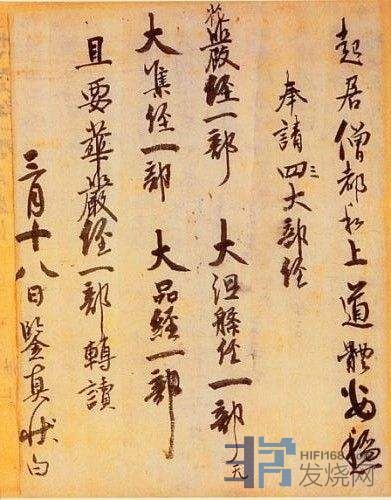 起居僧都和上道體安穩
奉請四大部經
三
花嚴經一部 大涅槃經一部
大集經一部 大品經一部
且要華嚴經一部轉讀
三月十八日鑒真狀白
HIFI168.com
发烧网